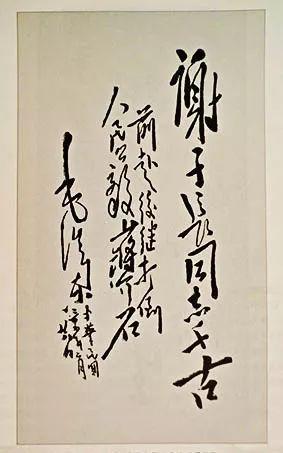 谢子长同志千古
前赴後继打倒
人民公敌蒋介石
毛泽东